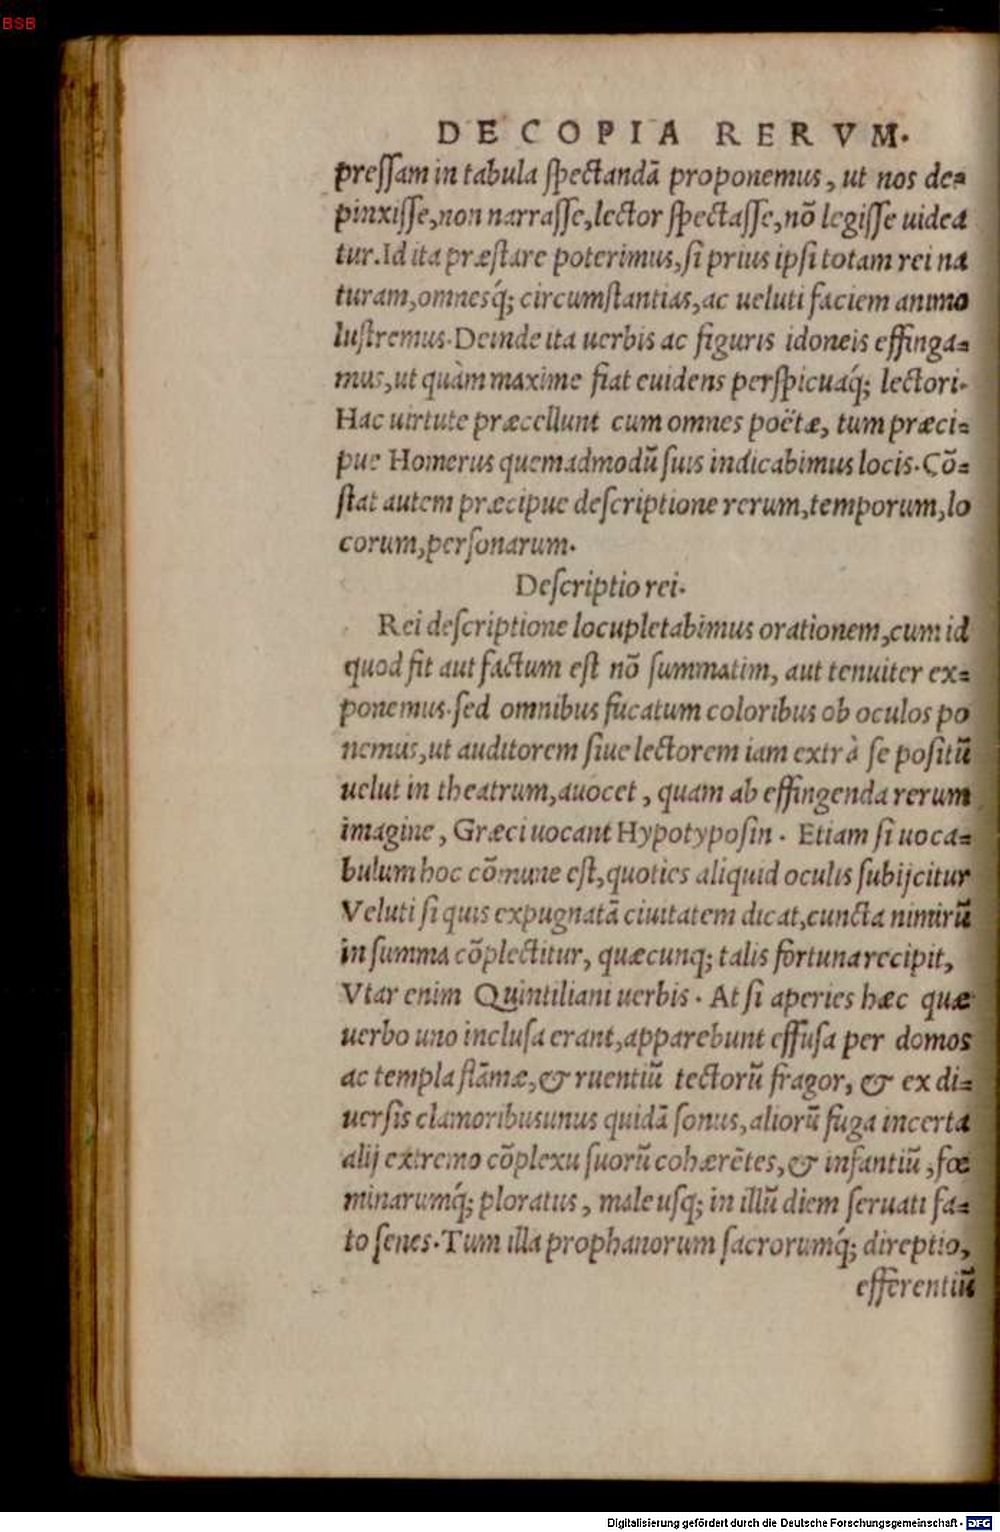 BSB
DE COPIA RERVM.
preſſam in tabula ſpectandā proponemus, ut nos de=
pinxiſſe, non narraſſe, lector ſpectaſſe, nō legiſſe uidea
tur. Id ita præſtare poterimus, ſi prius ipſi totam rei na
turam, omnesq́; circumſtantias, ac ueluti faciem animo
luſtremus. Deinde ita uerbis ac figuris idoneis effinga=
mus, ut quàm maxime fiat euidens perſpicuaq́; lectori.
Hac uirtute præcellunt cum omnes poëtæ, tum præci=
pue Homerus quemadmodū ſuis indicabimus locis. Cō=
ſtat autem præcipue deſcriptione rerum, temporum, lo
corum, perſonarum.
Deſcriptio rei.
Rei deſcriptione locupletabimus orationem, cum id
quod fit aut factum eſt nō ſummatim, aut tenuiter ex=
ponemus. ſed omnibus fucatum coloribus ob oculos po
nemus, ut auditorem ſiue lectorem iam extrà ſe poſitū
uelut in theatrum, auocet, quam ab effingenda rerum
imagine, Græci uocant Hypotypoſin. Etiam ſi uoca=
bulum hoc cōmune eſt, quoties aliquid oculis ſubijcitur
Veluti ſi quis expugnatā ciuitatem dicat, cuncta nimirū
in ſumma cōplectitur, quæcunq; talis fortuna recipit,
Vtar enim Quintiliani uerbis. At ſi aperies hæc quæ
uerbo uno incluſa erant, apparebunt effuſa per domos
ac templa flāmæ, & ruentiū tectorū fragor, & ex di=
uerſis clamoribus unus quidā ſonus, aliorū fuga incerta
alij extremo cōplexu ſuorū cohærētes, & infantiū, fœ
minarumq́; ploratus, male uſq; in illū diem ſeruati fa=
to ſenes. Tum illa prophanorum ſacrorumq́; direptio,
efferentiū
Digitalisierung gefördert durch die Deutsche Forschungsgemeinschaft - DFG